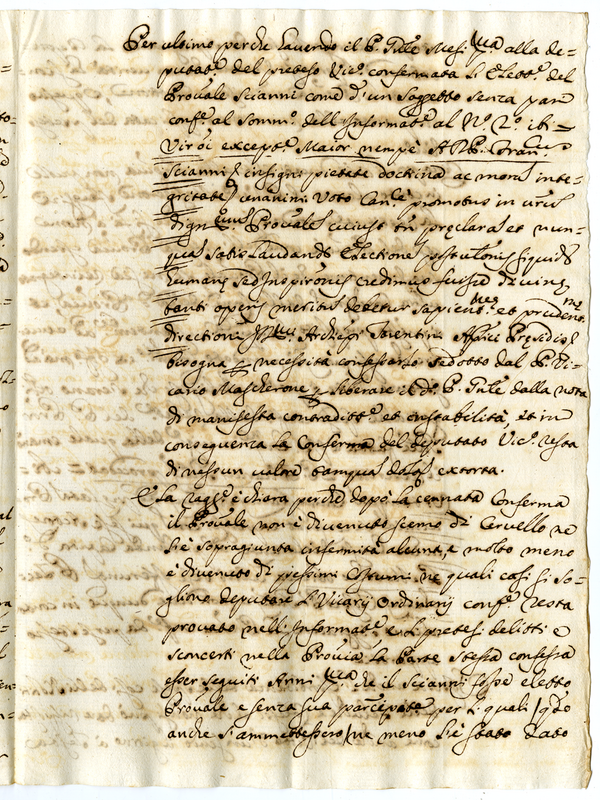 Per ultimo perche havendo il P. Gnle Mesi qua alla de=
putatª del preteso Vicº confermata l'Elettª del
Provale Scianni come d'un Soggetto senza pare
confe al Sommº dell'Informatª al Nº 2º ibi=
Viròi exceptº Maior nempè A.R.P. Fran.cus
Scianni insigni pietate doctrina ac morũ inte=
gritate unanimi voto promotus in
Provale cuius preclara et nun=
quã satis laudandã Electione siquidẽ
humanã sed Inspirõnẽ credimus fuisse divinã
tanti operis meritũ debetur sapientmae et prudentmae
directioni Archiepi Tarentini
bisogna p necessità confessarlo sedotto dal P. Vi=
cario Mascherone p liberare il dº P. Gnle dalla nota
di manifesta contradittº et instabilità, et in
conseguenza la Conferma del deputato Vicº resta
di nessun valore tamquã extorta.
E la raggº è chiara perche dopò la cennata Conferma
il Provale non è divenuto scemo di Cervello ne
li è sopragiunta infermità alcuna, e molto meno
è divenuto di pessimi Costumi, ne quali casi si so=
gliono deputare li Vicarij Ordinarij confe resta
provato nell'Informatª e li pretesi delitti e
sconcerti nella Provcia la Parte stessa confessa
esser seguiti Anni qua che il Scianni fosse eletto
Provale e senza sua partecipatº per li quali
anche s'ammettessero/ne meno li è stato dato